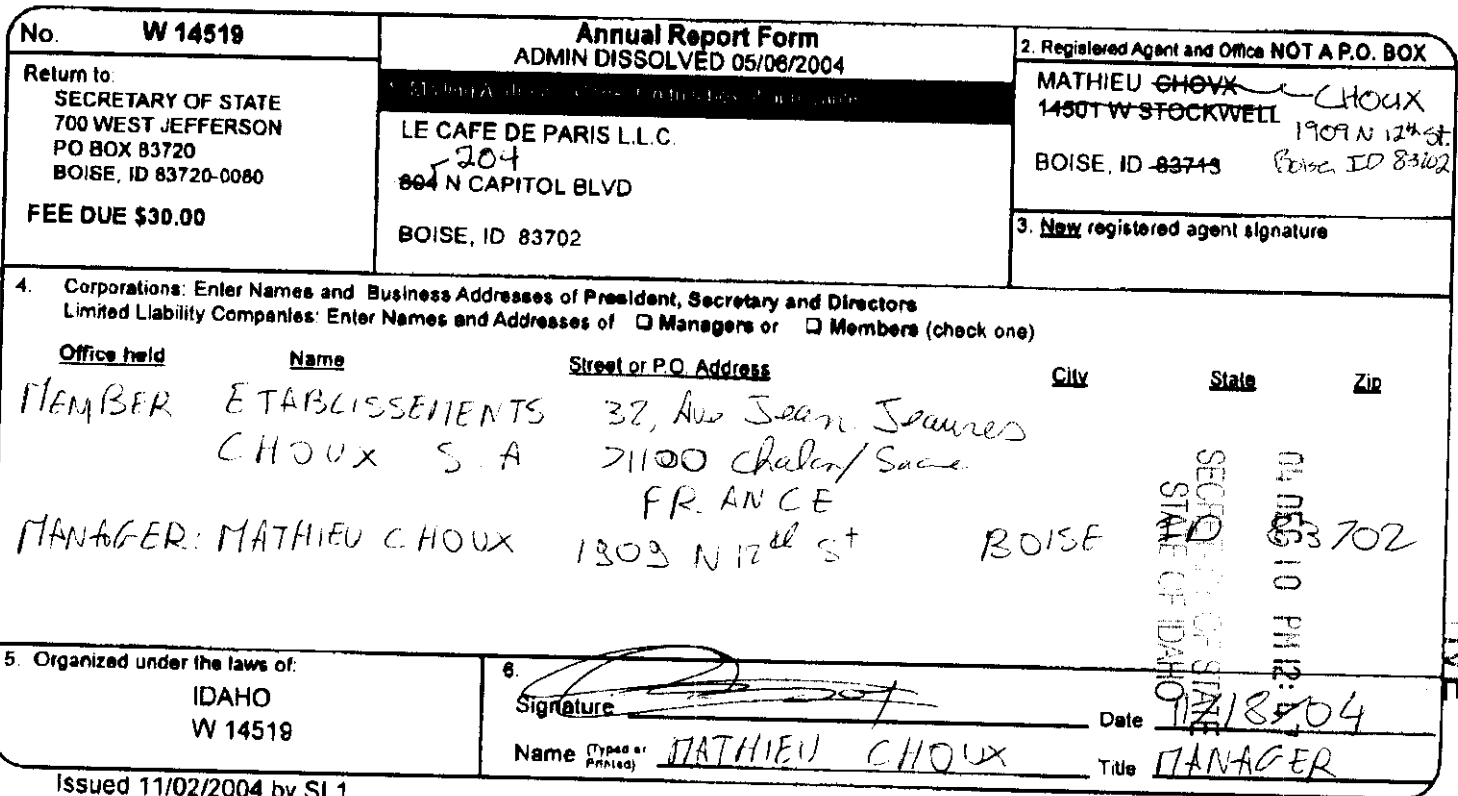 No. W 14519
Return to:
SECRETARY OF STATE
700 WEST JEFFERSON
PO BOX 83720
BOISE, ID 83720-0080
FEE DUE $30.00
Annual Report Form
ADMIN DISSOLVED 05/06/2004
LE CAFE DE PARIS L.L.C.
204
804 N CAPITOL BLVD
BOISE, ID 83702
2. Registered Agent and Office NOT A P.O. BOX
MATHIEU CHOVX CHOUX
14501 W STOCKWELL
1909 N 12th St.
BOISE, ID 83713 Boise, ID 83702
3. New registered agent signature
4. Corporations: Enter Names and Business Addresses of President, Secretary and Directors
Limited Liability Companies: Enter Names and Addresses of ❑ Managers or ❑ Members (check one)
Office held Name Street or P.O. Address City State Zip
MEMBER ETABLISSEMENTS 32, Ave Jean Jeaures
CHOUX S.A 71100 Chalon/Saone
FRANCE
MANAGER: MATHIEU CHOUX 1909 N 12th St BOISE ID 83702
04 DEC 10 PM 12:
SECRETARY OF STATE
STATE OF IDAHO
5. Organized under the laws of:
IDAHO
W 14519
6.
Signature Date 18/04
Name (Typed or Printed) MATHIEU CHOUX Title MANAGER
Issued 11/02/2004 by SL1